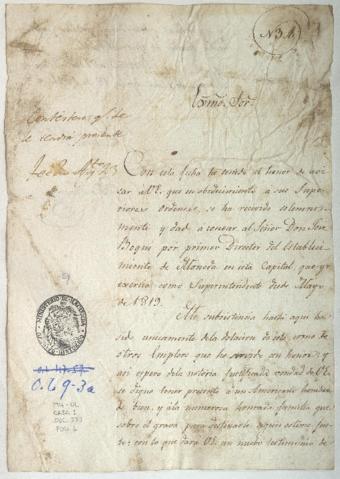 N 5.
Exmo. Sor.
Contéstese qe. se
le tendrá presente
Con esta fha he tenido el honor de avi-
sar a V.E. que en obedecimiento a sus Supe-
riores Ordenes, se ha recivido solemne-
mente y dad a
Señor Don José
Boqui por primer Director del Estableci-
miento de Moneda en esta Capital, que yo
exercia como Superintendente desde Mayo
de 1819.
Mi subsistencia hasta aqui ha
sido unicamente de la dotacion de este, como de
otros Empleos que he servido con honor; y
asi espero de la notoria justificada bondad de V.E.
se digne tener presente a un Americano hombre
de bien, y a la numerosa honrada familia que
sobre el grava para destinarlo
con lo que dará V.E. un nuevo testimonio de
O.L. 9-3a